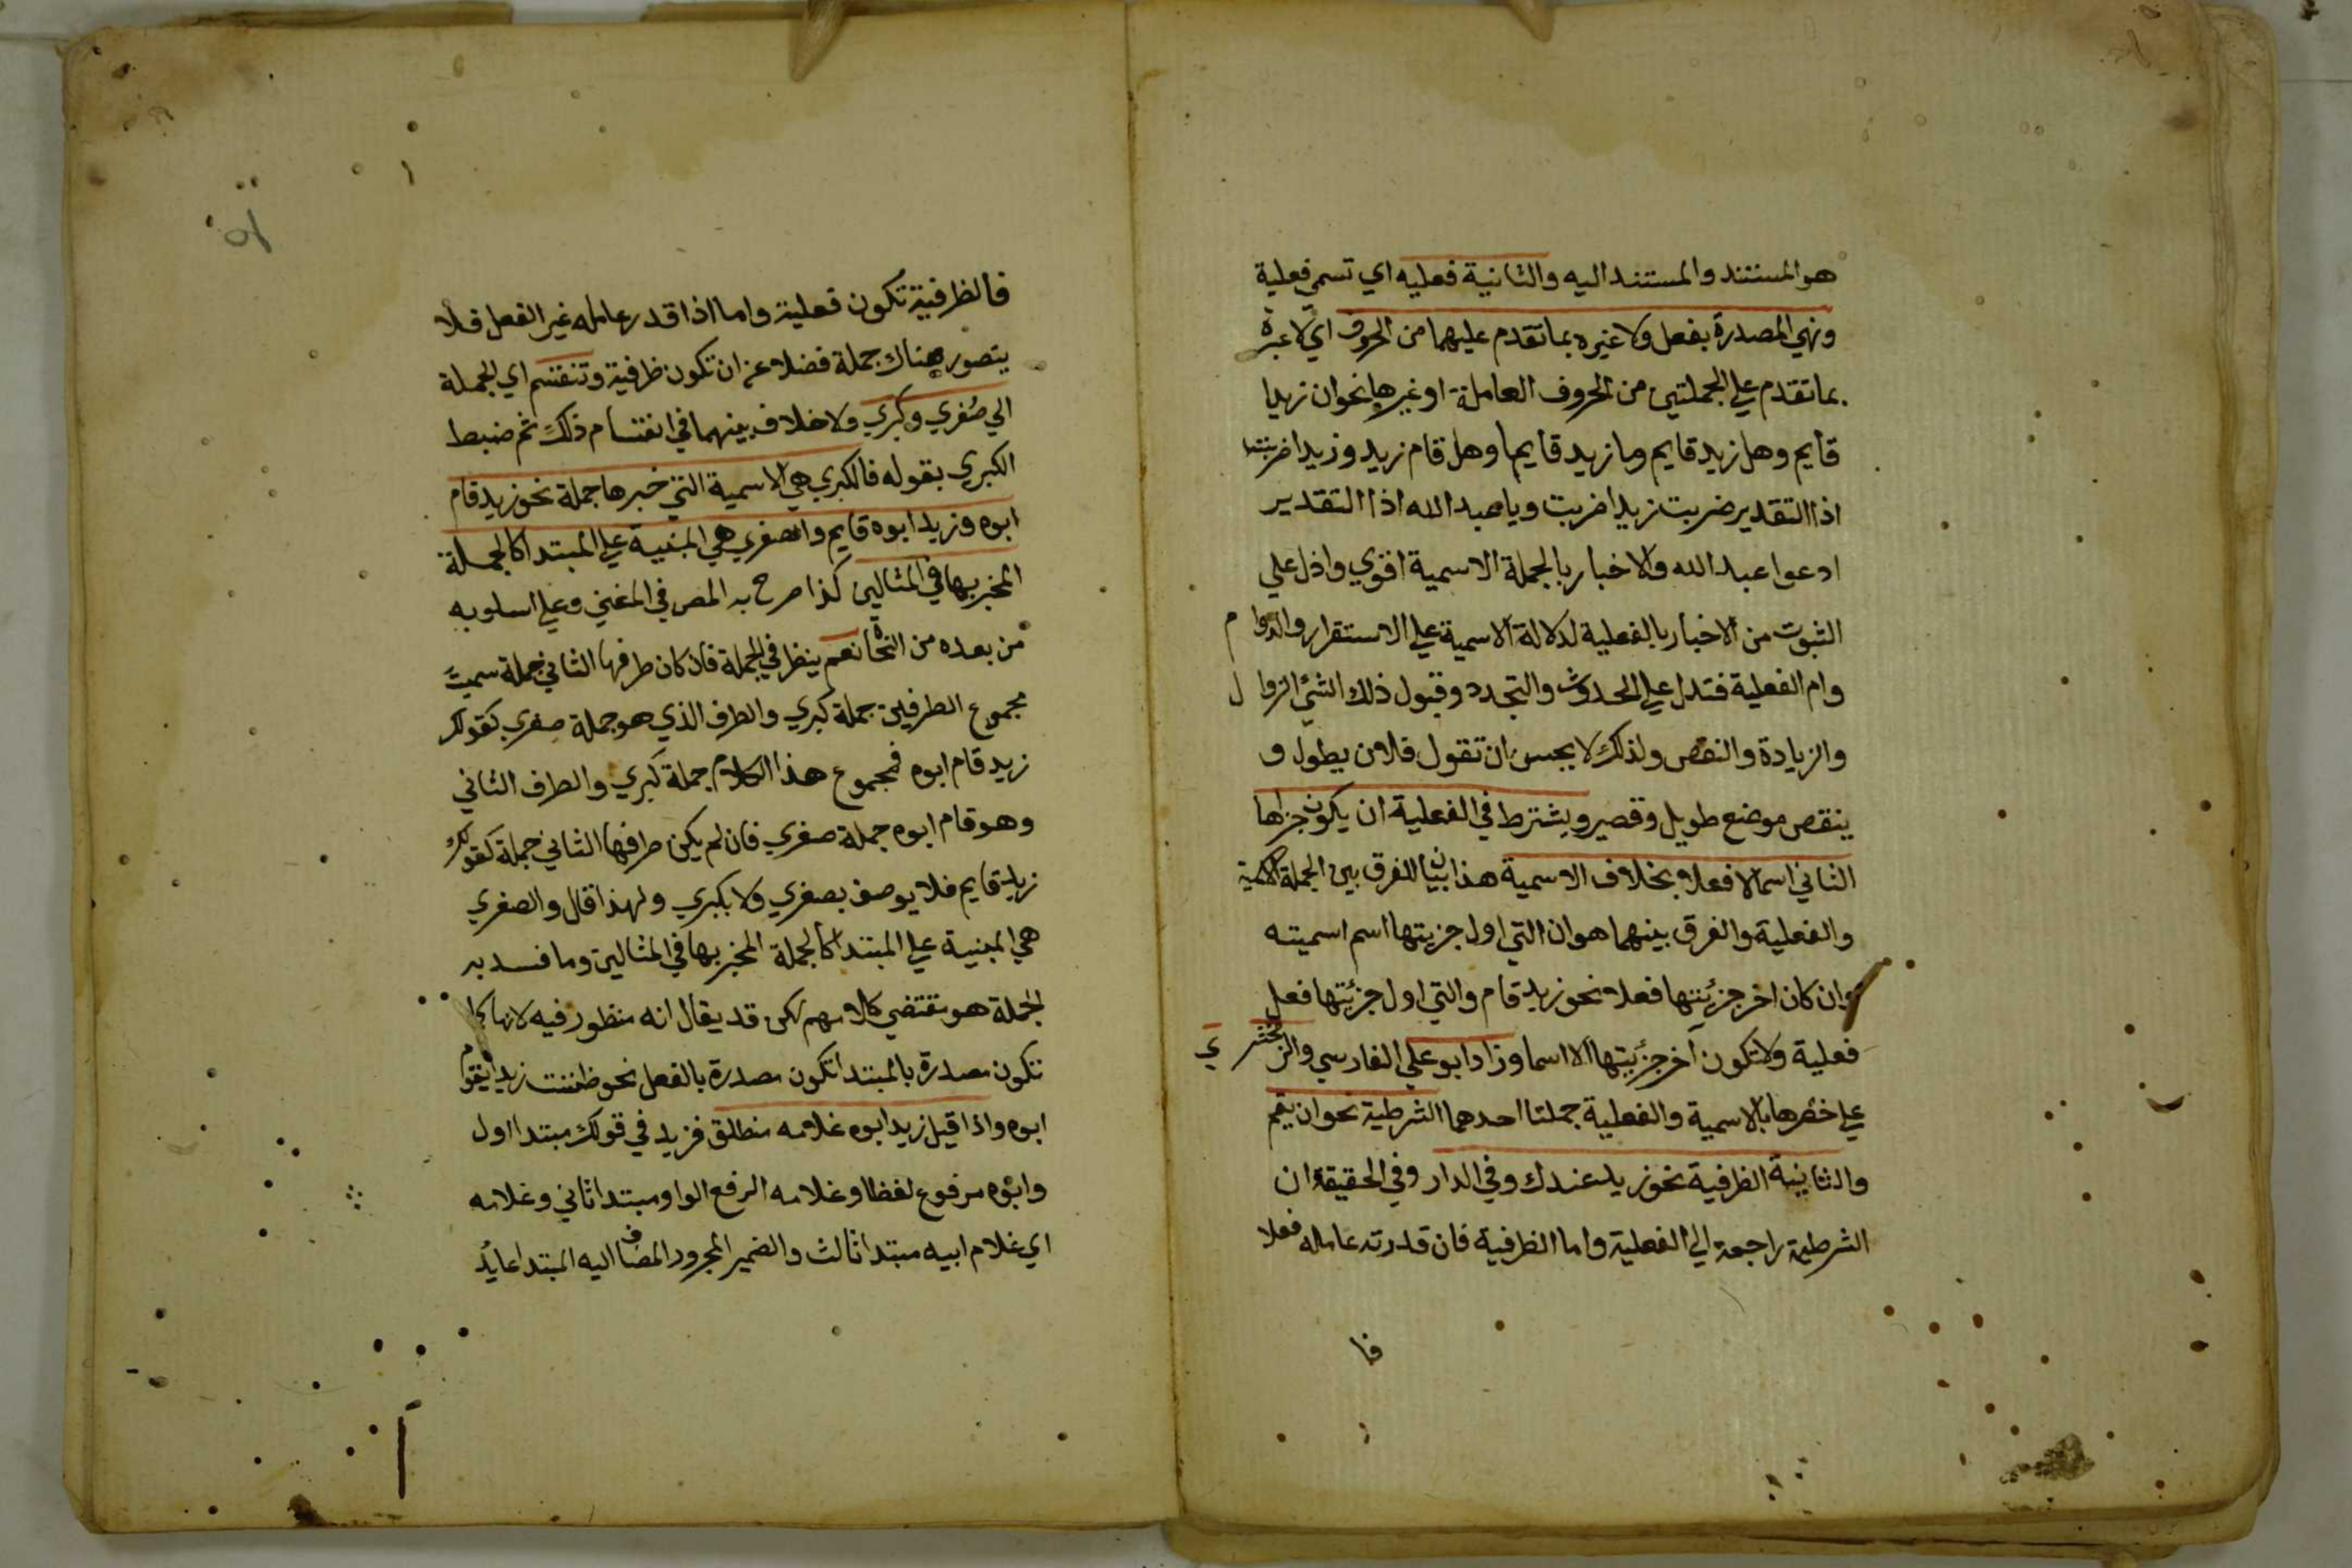 هو المستند والمستند اليه والثانية فعليه اي تسمي فعلية
وهي المصدرة بفعل ولا غيره بما تقدم عليهما من الحروف اي لا عبرة
بما تقدم علي الجملتين من الحروف العاملة او غيرها نحو ان زيدا
قايم وهل زيد قايم وما زيد قايما وهل قام زيد وزيدا ضربته
اذ التقدير ضربت زيدا ضربت ويا عبد الله اذ التقدير
ادعوا عبد الله والاخبار بالجملة الاسمية اقوي وادل علي
الثبوت من الاخبار بالفعلية لدلالة الاسمية علي الاستقرار والدوام
وام الفعلية فتدل علي الحدوث والتجدد وقبول ذلك الشئ الزوال
والزيادة والنقص ولذلك لا يحسن ان تقول فلان يطول و
ينقص موضع طويل وقصير ويشترط في الفعلية ان يكون جزاها
الثاني اسما لا فعلا بخلاف الاسمية هذا بيان للفرق بين الجملة الاسمية
والفعلية والفرق بينهما هو ان التي اول جزيتها اسم اسميته
وان كان اخر جزئيتها فعلا نحو زيد قام والتي اول جزئيتها فعل
فعلية ولا تكون آخر جزئيتها الا اسما وزاد ابو علي الفارسي والزمخشري
علي حصرها بالاسمية والفعلية جملتا احدهما الشرطية نحو ان يقم
والثانية الظرفية نحو زيد عندك وفي الدار وفي الحقيقة ان
الشرطية راجعة الي الفعلية واما الظرفية فان قدرته عامله فعلا
فا
فالظرفية تكون فعلية واما اذا قدر عامله غير الفعل فلا
يتصور هناك جملة فضلا عن ان تكون ظرفية وتنقسم اي الجملة
الي صغري وكبري ولا خلاف بينهما في انقسام ذلك ثم ضبط
الكبري بقوله فالكبري هي الاسمية التي خبرها جملة نحو زيد قام
ابوه وزيد ابوه قايم والصغري هي المبنية علي المبتدا كالجملة
المخبر بها في المثالين كذا صرح به المص في المغني وعلي اسلوبه
من بعده من النحاة نعم ينظر في الجملة فان كان طرفها الثاني جملة سميت
مجموع الطرفين جملة كبري والطرف الذي هو جملة صغري كقولك
زيد قام ابوه فمجموع هذا الكلام جملة كبري والطرف الثاني
وهو قام ابوه جملة صغري فان لم يكن طرفها الثاني جملة كقولك
زيد قايم فلا يوصف بصغري ولا بكبري ولهذا قال والصغري
هي المبنية علي المبتدا كالجملة المخبر بها في المثالين وما فسد به
الجملة هو مقتضي كلامهم لكن قد يقال انه منظور فيه لانها كما
تكون مصدرة بالمبتدا تكون مصدرة بالفعل نحو ظننت زيدا يقوم
ابوه واذا قيل زيد ابوه غلامه منطلق فزيد في قولك مبتدا اول
وابوه مرفوع لفظا وغلامه الرفع الواو مبتدا ثاني وغلامه
اي غلام ابيه مبتدا ثالث والضمير المجرور المضاف اليه المبتدا عايد